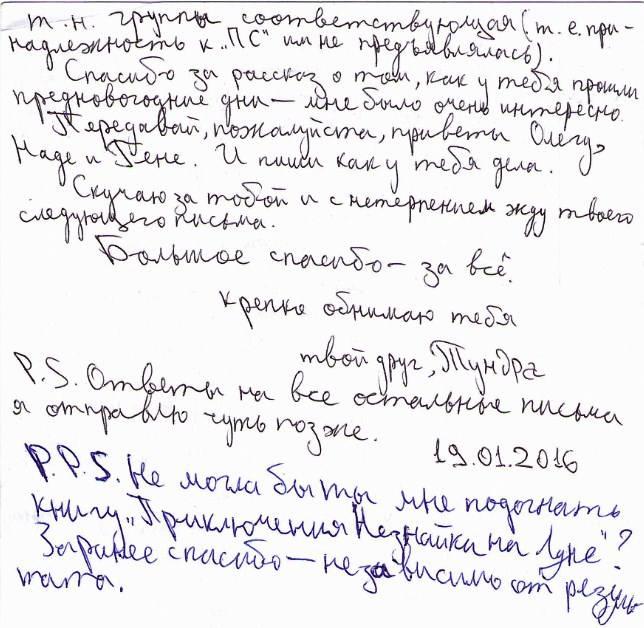 т.н. группы соответствующая (т.е. при-
надлежность к „ПС" им не предъявлялась).
Спасибо за рассказ о том, как у тебя прошли
предновогодние дни – мне было очень интересно.
Передавай, пожалуйста, приветы Олегу,
Наде и Гене. И пиши как у тебя дела.
Скучаю за тобой и с нетерпением жду твоего
следующего письма.
Большое спасибо – за всё.
крепко обнимаю тебя
твой друг, Тундра
P.S. Ответы на все остальные письма
я отправлю чуть позже.
19.01.2016
P.P.S. Не могла бы ты мне подогнать
книгу „Приключения Незнайки на Луне"?
Заранее спасибо – независимо от резуль-
тата.